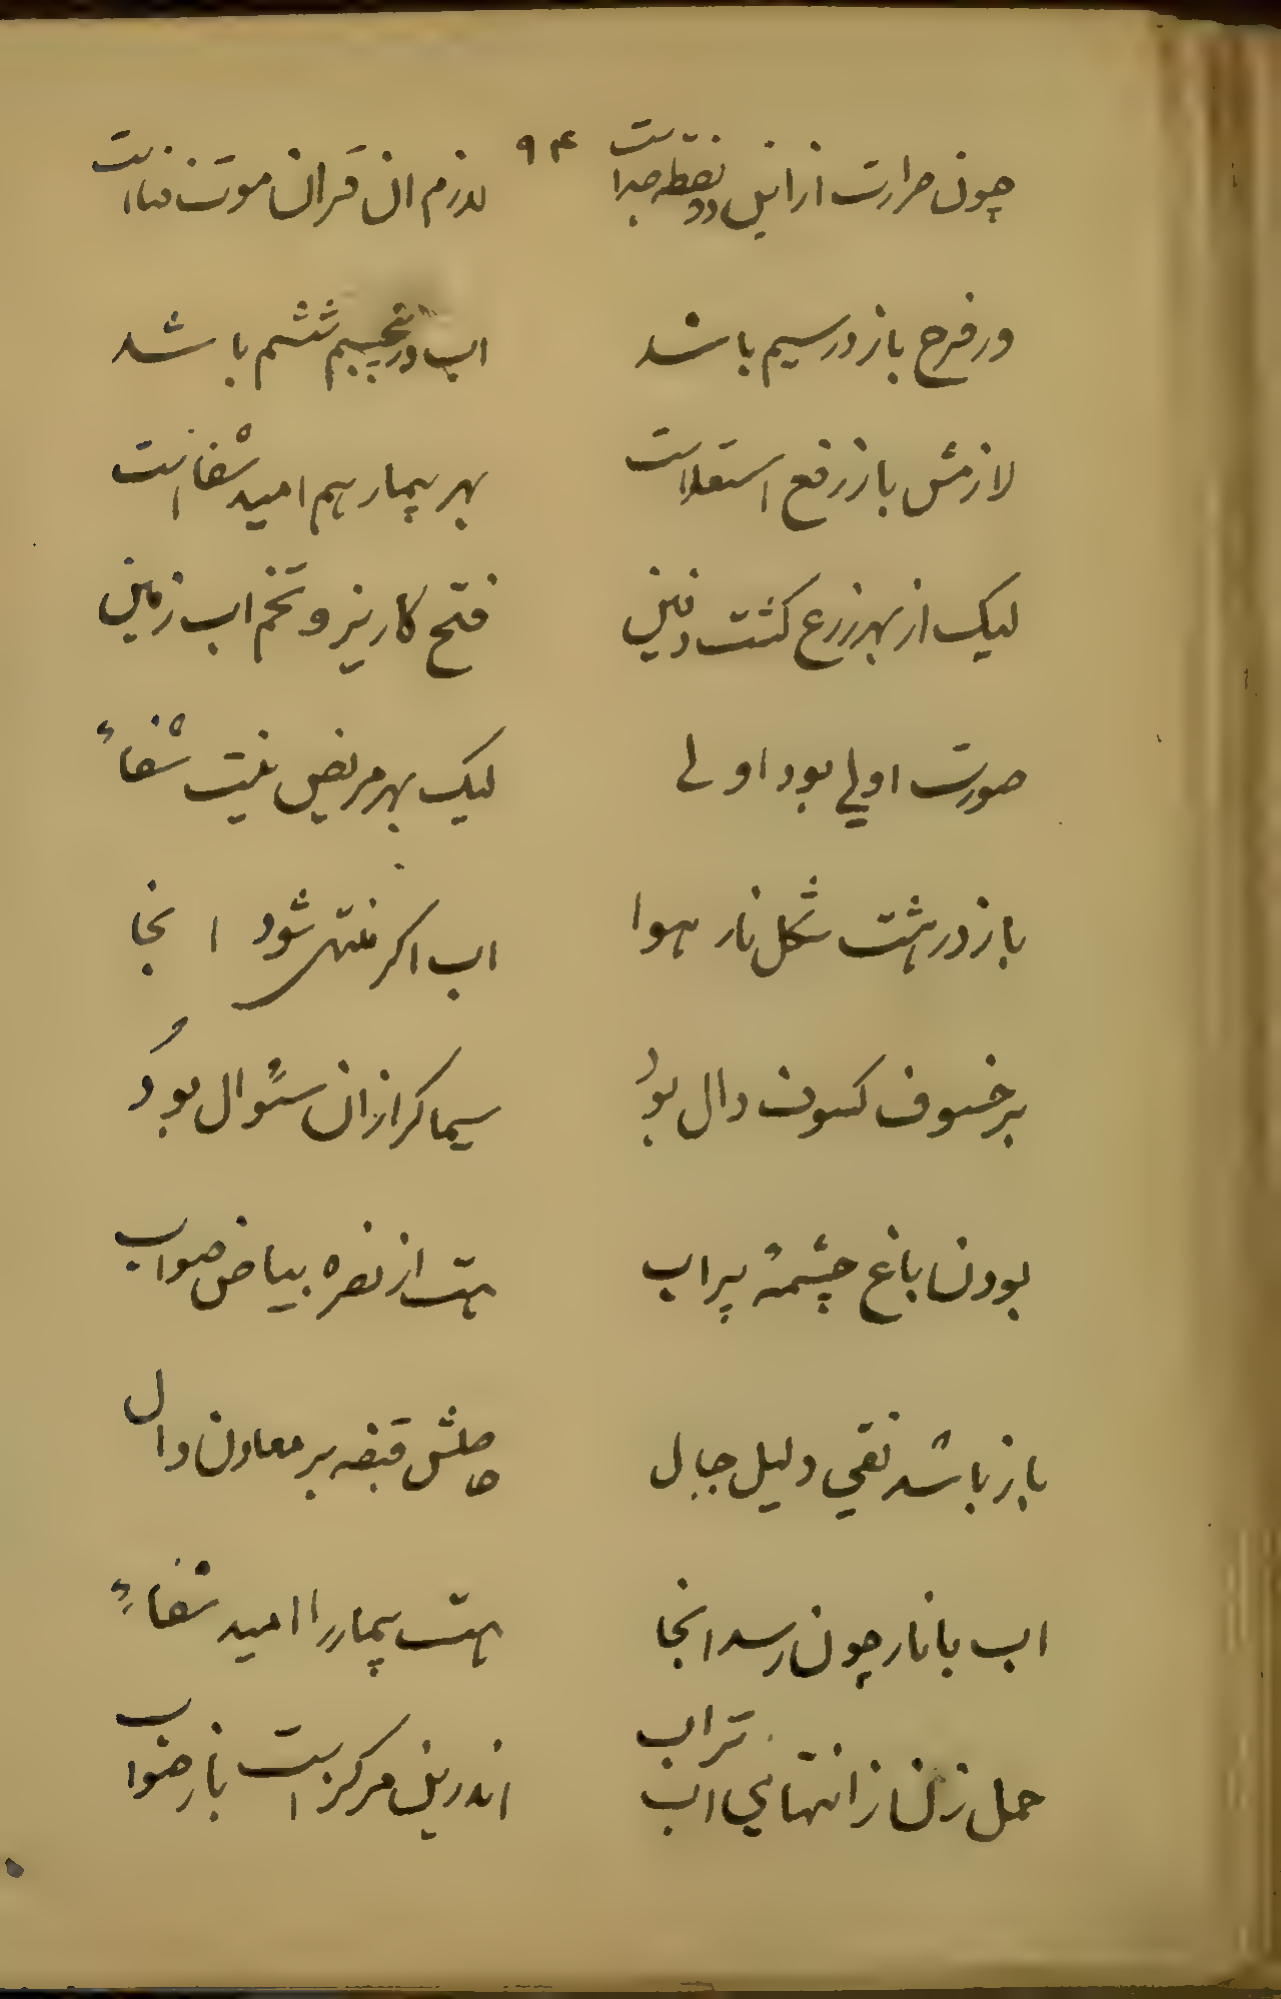 ۹۴
چون حرارت ازاین دو نقطه جداست لازم ان قران موت فناست
ور فرح باز در سیم باشد اب در پنجم ششم باشد
لازمش باز رفع استعلاست بهر بیمار هم امید شفا است
لیک از بهر زرع کشت دفین فتح کاریز و تخم اب زمین
صورت اولی بود اولے لیک بهر مریض نیت شفاء
باز در هشت شکل نار هوا اب اکر منتهی شود انجا
بر خسوف کسوف دال بود سیما کر ازان سئوال بود
بودن باغ چشمهٔ پراب هت از نصره بیاض صواب
باز باشد نقی دلیل جبال حاصلش قبضه بر معادن دال
اب با نار چون رسد انجا هت بیمار را امید شفاء
حمل زن ز انتهای اب تراب اندرین مرکز است باز صواب